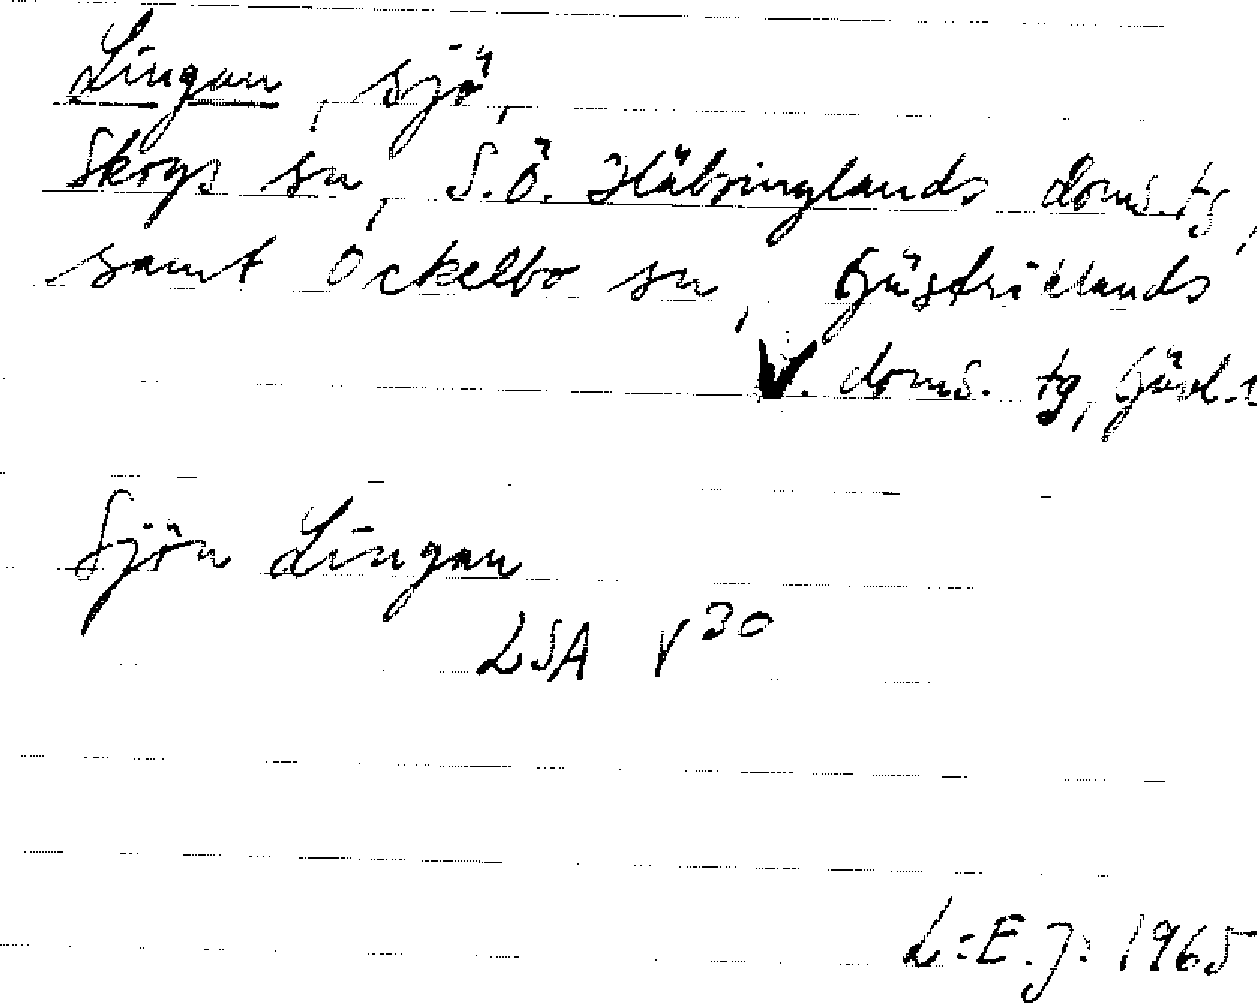 Lingan, sjö,
Skogs sn, S.Ö. Hälsinglands doms.tg,
samt Ockelbo sn, Gästriklands
V. doms. tg, Gävl.
Sjön Lingan
LSA V 30
L:E.J: 1965